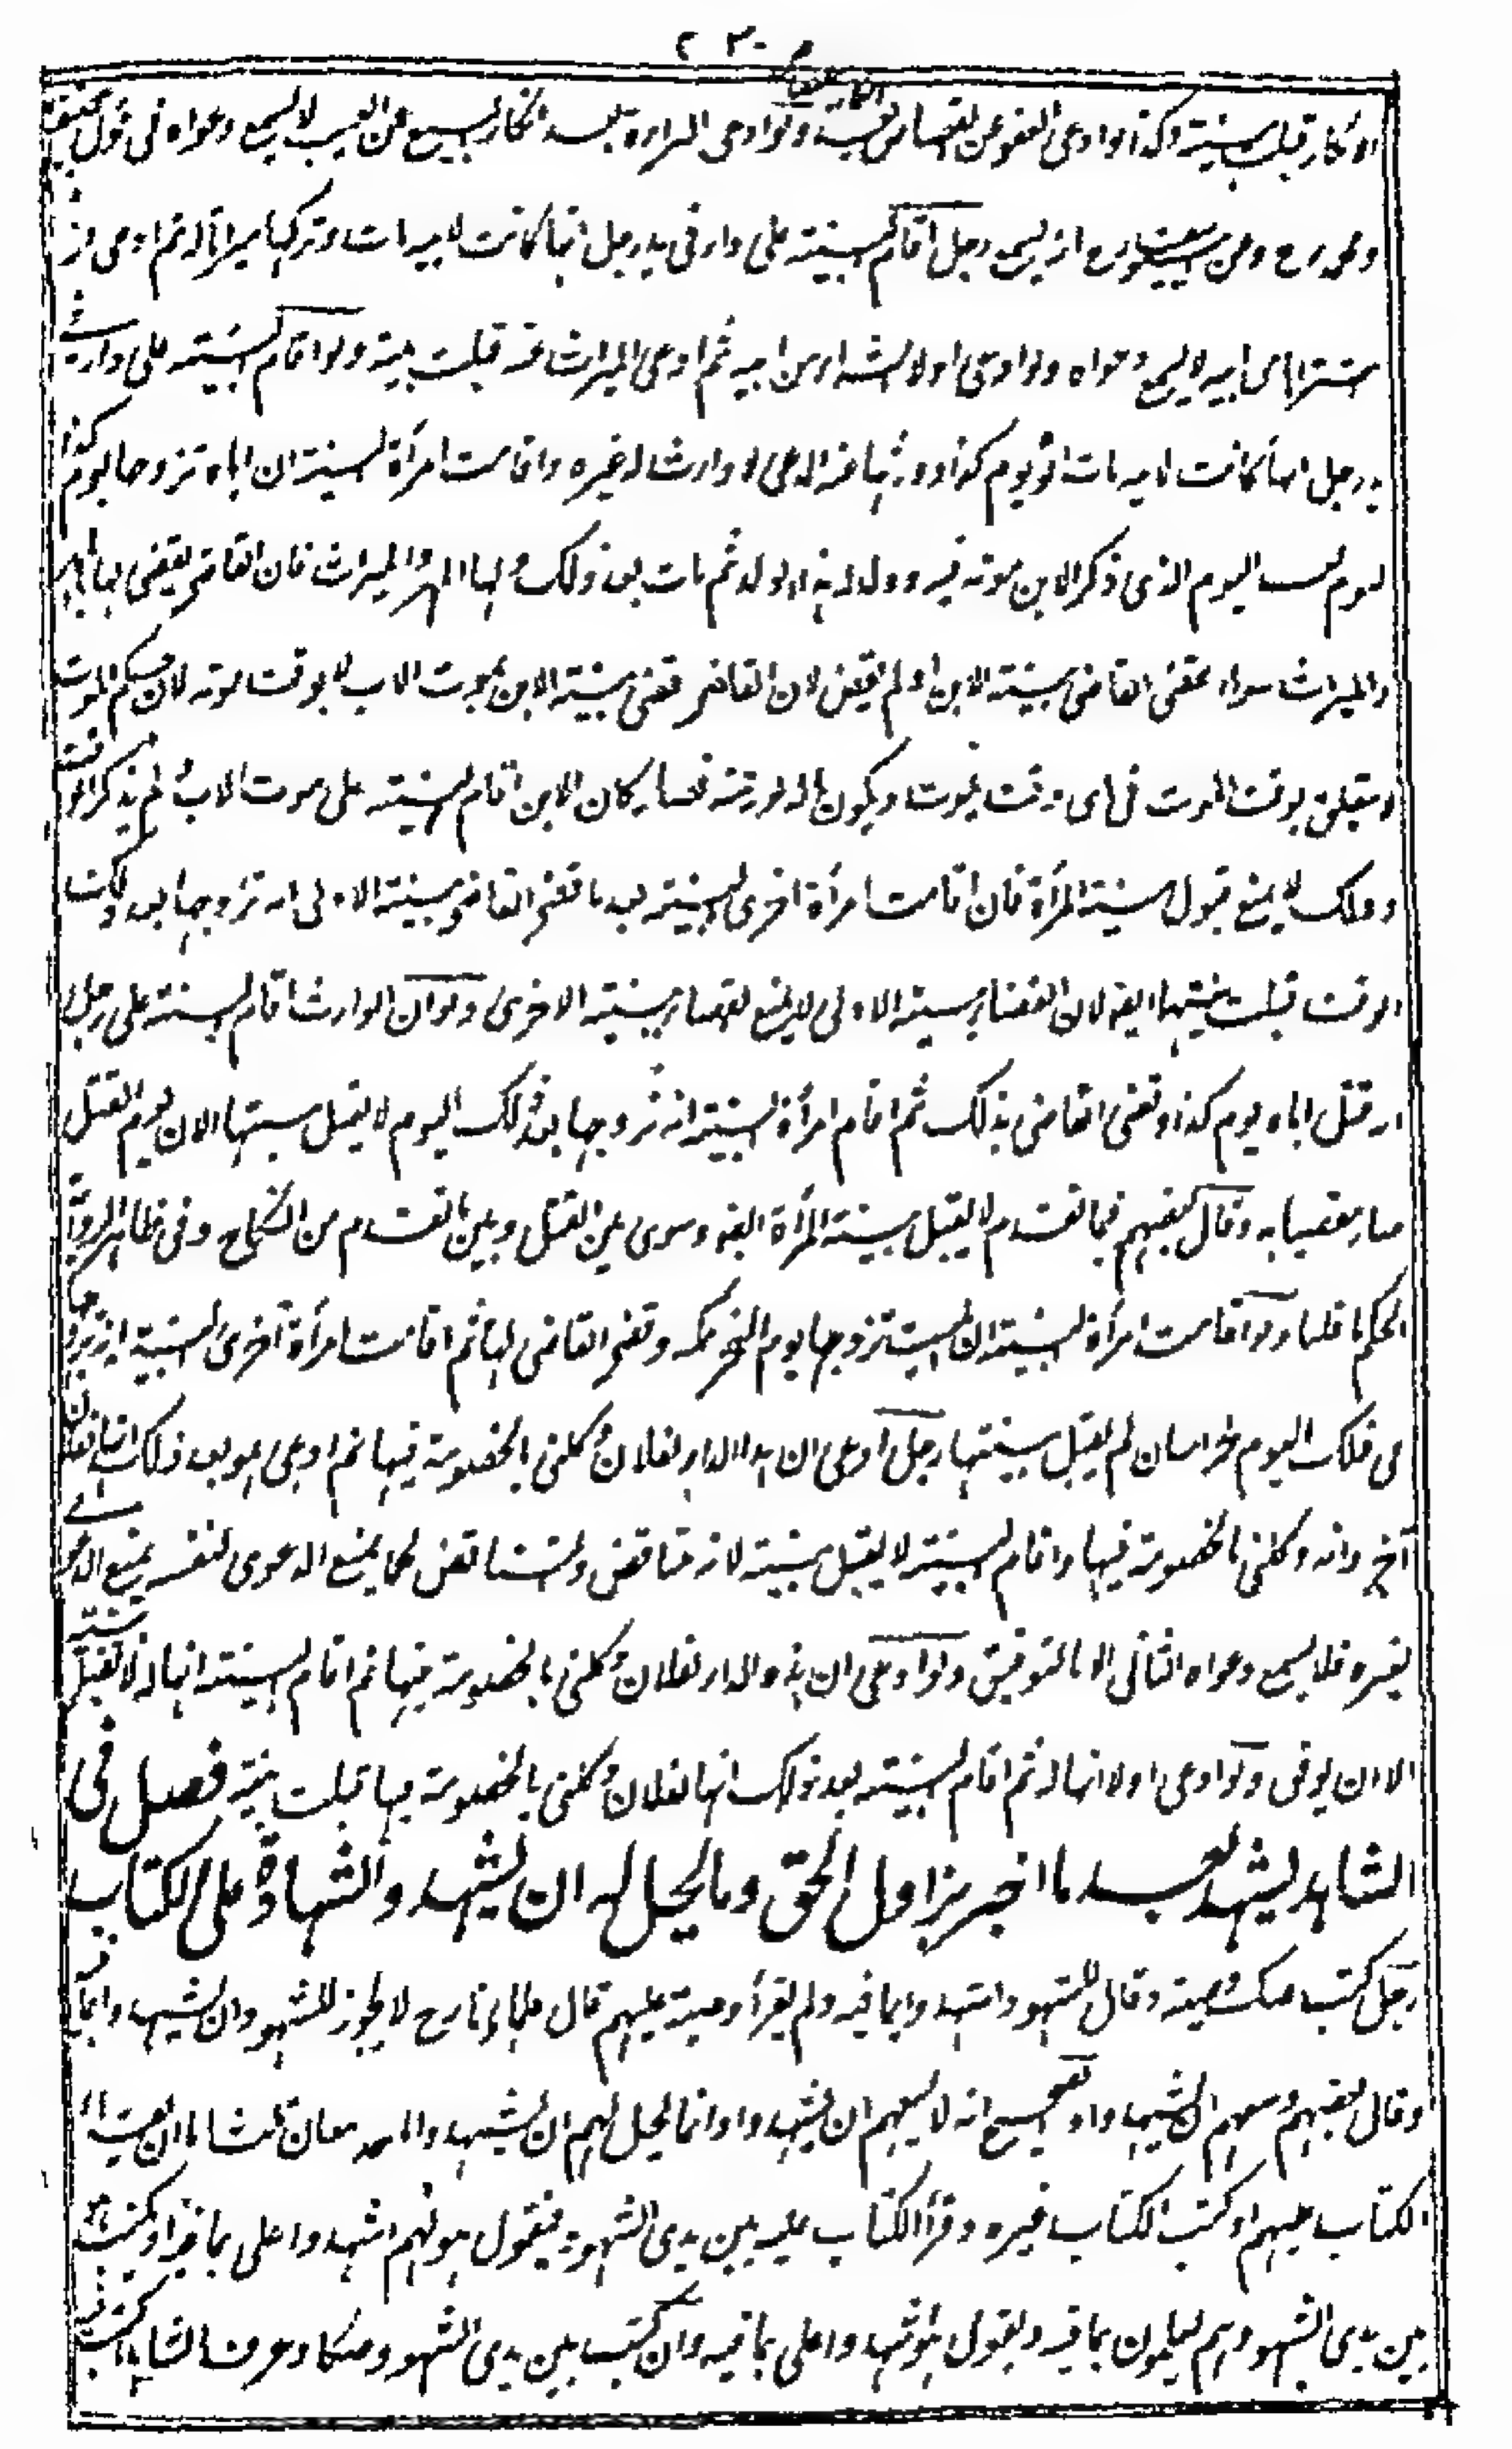 ٢٣٠
او انكار قبلت بينته وكذا لو ادعى العفو عن القصاص بعد ولو ادعى البراءة بعد انكار البيع عن العيب لا يسمع دعواه فى قول
ومحمد رح وعن ابى يوسف رح انه يسمع رجل اقام البينة على دار فى يد رجل انها كانت لابيه مات وتركها ميراثا له ثم ادعى
اشتراها من ابيه لا يسمع دعواه ولو ادعى اولا الشراء من ابيه ثم ادعى الميراث عنه قبلت بينته ولو اقام البينة على دار فى
يد رجل انها كانت لابيه مات ابوه يوم كذا وورثها عنه المدعى لا وارث له غيره واقامت امرأة البينة ان اباه تزوجها يوم كذا
ليوم بعد اليوم الذى ذكر الابن موته فيه وولد له هذا الولد ثم مات بعد ذلك ولها المهر والميراث فان القاضى يقضى لها بالمهر
والميراث سواء قضى القاضى ببينة الابن او لم يقض لان القاضى قضى ببينة الابن بموت الاب لا بوقت موته لان حكم الموت
يتعلق بوقت الموت فى اى وقت يموت ويكون ماله لورثته فصار كان الابن اقام البينة على موت الاب ولم يذكر الوقت
وذلك لا يمنع قبول بينة المرأة فان اقامت امرأة اخرى البينة بعد ما قضى القاضى ببينة الاولى انه تزوجها بعد ذلك
الوقت قبلت بينتها ايضا لان القضاء ببينة الاولى لا يمنع القضاء ببينة الاخرى ولو ان الوارث اقام البينة على رجل
انه قتل اباه يوم كذا وقضى القاضى بذلك ثم اقام امرأة البينة انه تزوجها بعد ذلك اليوم لا يقبل بينتها لان يوم القتل
صار مقضيا به وقال بعضهم فيما تقدم لا يقبل بينة المرأة ايضا وسوى بين القتل وبين ما تقدم من النكاح وفى ظاهر الرواية
الحكم ما قلنا ولو اقامت امرأة البينة ان الميت تزوجها يوم النحر بمكة وقضى القاضى لها ثم اقامت امرأة اخرى البينة انه تزوجها
فى ذلك اليوم بخراسان لم يقبل بينتها رجل ادعى ان هذا الدار لفلان وكلنى بالخصومة فيها ثم ادعى هو بعد ذلك انها لفلان
آخر وانه وكلنى بالخصومة فيها واقام البينة لا يقبل بينته لانه متناقض والتناقض كما يمنع الدعوى لنفسه يمنع الدعوى
لغيره فلا يسمع دعواه الثانى الا بالتوفيق ولو ادعى ان هذه الدار لفلان وكلنى بالخصومة فيها ثم اقام البينة انها له لا تقبل بينته
الا ان يوفق ولو ادعى اولا انها له ثم اقام البينة بعد ذلك انها لفلان وكلنى بالخصومة فيها قبلت بينته فصل فى
الشاهد يشهد بعد ما اخبر بزوال الحق وما يحل له ان يشهد والشهادة على الكتاب
رجل كتب صك وصيته وقال للشهود اشهدوا بما فيه ولم يقرأ وصيته عليهم قال علماؤنا رح لا يجوز للشهود ان يشهدوا بما فيه
وقال بعضهم وسعهم ان يشهدوا والصحيح انه لا يسعهم ان يشهدوا وانما يحل لهم ان يشهدوا باحد معان ثلث اما ان يقرأ
الكتاب عليهم او كتب الكتاب غيره وقرأ الكتاب عليه بين يدى الشهود فيقول هو لهم اشهدوا على بما فيه او يكتب هو
بين يدى الشهود وهم يعلمون بما فيه ويقول هو اشهدوا على بما فيه وان كتب بين يدى الشهود صكا وعرف الشاهد ما كتب فيه